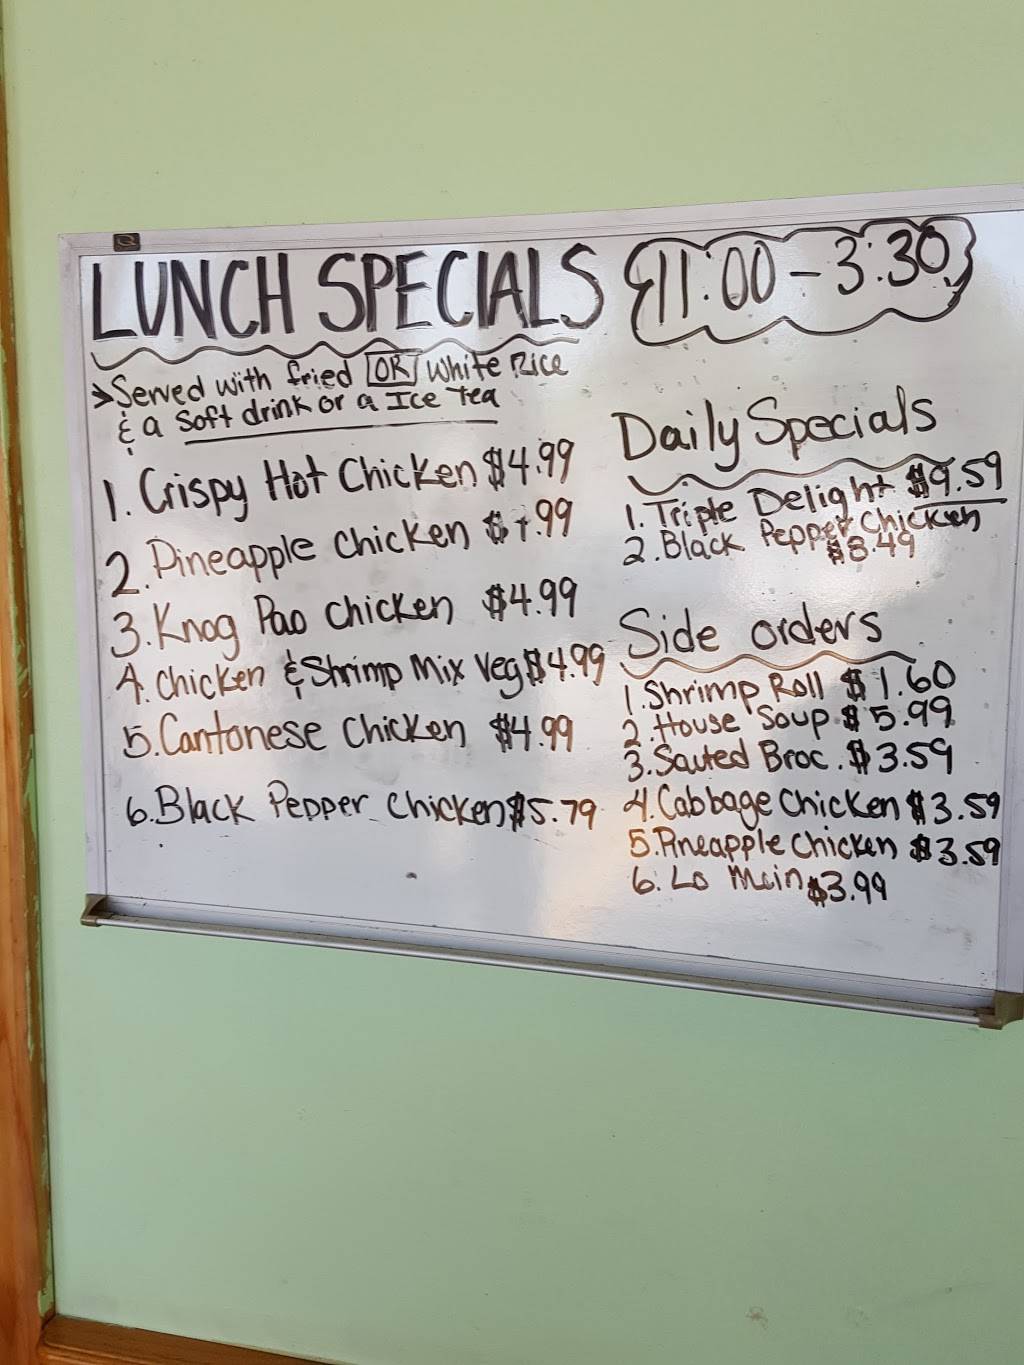 LUNCH SPECIALS {11:00 - 3:30}
> Served with fried OR White Rice
& a Soft drink or a Ice Tea
1. Crispy Hot Chicken $4.99
2. Pineapple Chicken .99
3. Knog Pao Chicken $4.99
4. Chicken & Shrimp Mix Veg $4.99
5. Cantonese Chicken $4.99
6. Black Pepper Chicken $5.79
Daily Specials
1. Triple Delight $9.59
2. Black Pepper Chicken
$8.49
Side orders
1. Shrimp Roll $1.60
2. House Soup $5.99
3. Sauted Broc. $3.59
4. Cabbage Chicken $3.59
5. Pineapple Chicken $3.59
6. Lo Mein $3.99